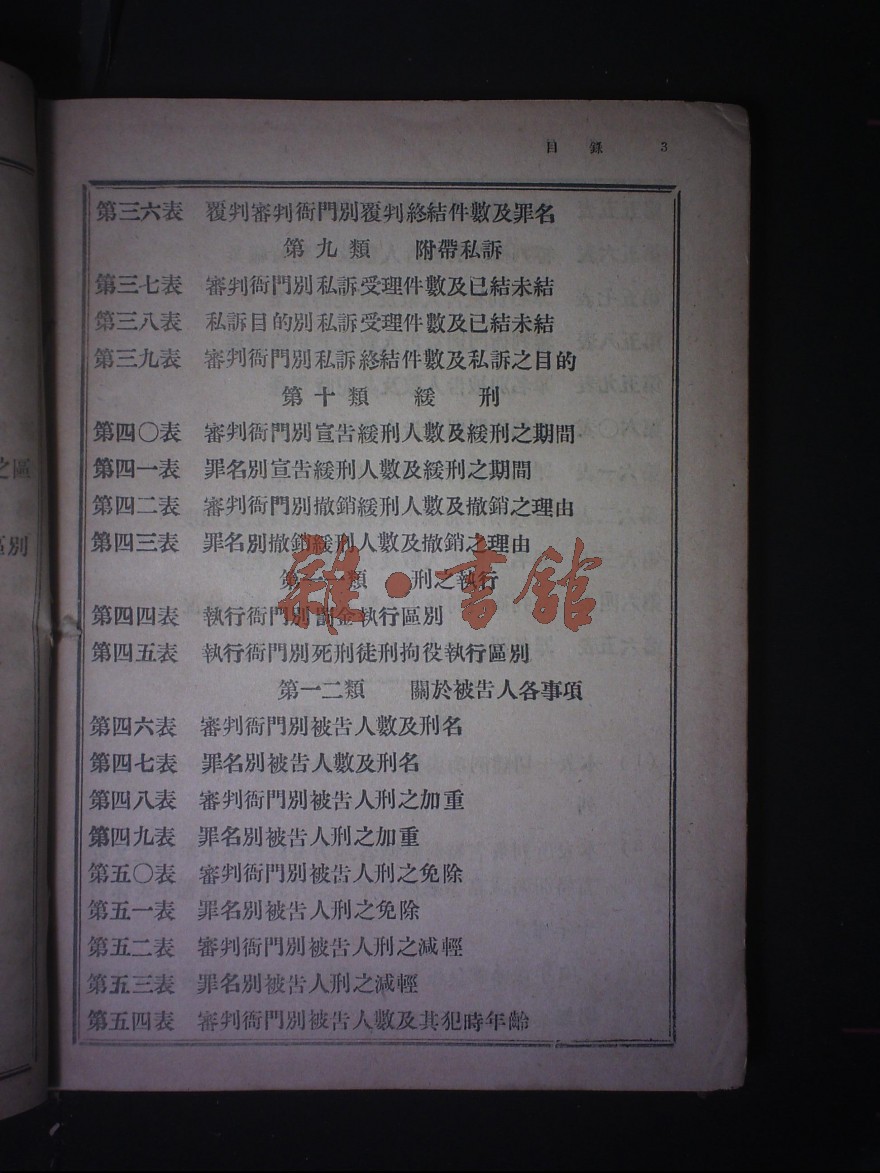 目錄 3
第三六表 覆判審判衙門別覆判終結件數及罪名
第九類 附帶私訴
第三七表 審判衙門別私訴受理件數及已結未結
第三八表 私訴目的別私訴受理件數及已結未結
第三九表 審判衙門別私訴終結件數及私訴之目的
第十類 緩刑
第四〇表 審判衙門別宣告緩刑人數及緩刑之期間
第四一表 罪名別宣告緩刑人數及緩刑之期間
第四二表 審判衙門別撤銷緩刑人數及撤銷之理由
第四三表 罪名別撤銷緩刑人數及撤銷之理由
第一一類 刑之執行
第四四表 執行衙門別罰金執行區別
第四五表 執行衙門別死刑徒刑拘役執行區別
第一二類 關於被告人各事項
第四六表 審判衙門別被告人數及刑名
第四七表 罪名別被告人數及刑名
第四八表 審判衙門別被告人刑之加重
第四九表 罪名別被告人刑之加重
第五〇表 審判衙門別被告人刑之免除
第五一表 罪名別被告人刑之免除
第五二表 審判衙門別被告人刑之減輕
第五三表 罪名別被告人刑之減輕
第五四表 審判衙門別被告人數及其犯時年齡
雜·書館
之區
區別